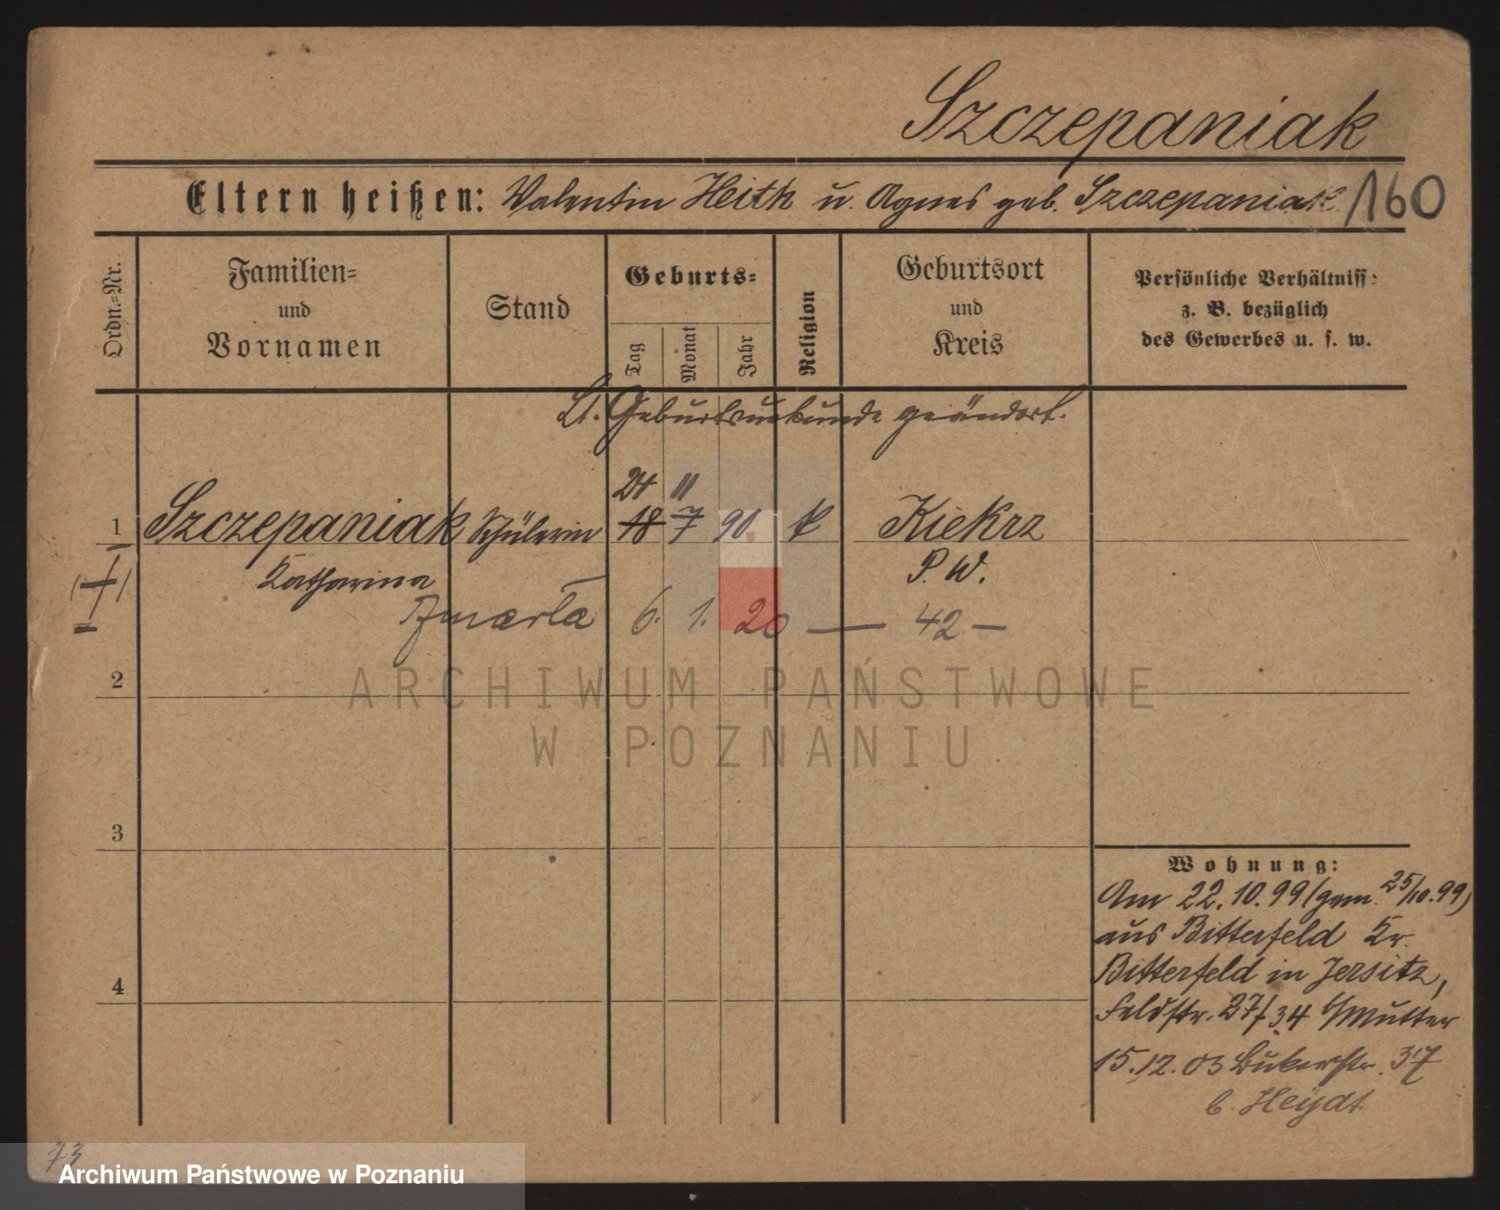 Szczepaniak
Eltern heißen: Valentin Heith u. Agnes geb. Szczepaniak 160
Ordn.-Nr.
Familien-
und
Vornamen
Stand
Geburts-
Tag
Monat
Jahr
Religion
Geburtsort
und
Kreis
Persönliche Verhältniss-
z. B. bezüglich
des Gewerbes u. s. w.
Lt. Geburtsurkunde geändert.
24 11
1 Szczepaniak Schülerin 18 7 90 k Kiekrz
Katharina P. W.
Zmarła 6. 1. 20 — 42 —
2
ARCHIWUM PAŃSTWOWE
W POZNANIU
3
4
Wohnung:
Am 22.10.99 (gem. 25/10.99)
aus Bitterfeld Kr.
Bitterfeld in Jersitz,
Feldstr. 34 b/Mutter
15.12.03 Bukerstr. 37
b. Heydt
73
Archiwum Państwowe w Poznaniu